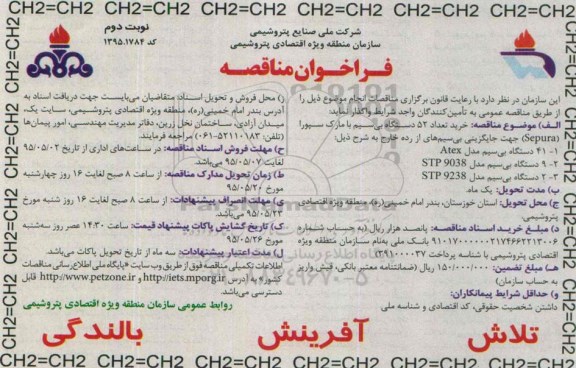 CH2=CH2 CH2=CH2 CH2=CH2 CH2=CH2 CH2=CH2 CH2=CH2 CH2=CH2
شرکت ملی صنایع پتروشیمی
سازمان منطقه ویژه اقتصادی پتروشیمی
نوبت دوم
کد ۱۳۹۵.۱۷۸۴
فراخوان مناقصه
این سازمان در نظر دارد با رعایت قانون برگزاری مناقصات انجام موضوع ذیل را
از طریق مناقصه عمومی به تأمین‌کنندگان واجد شرایط واگذار نماید:
الف) موضوع مناقصه: خرید تعداد ۵۲ دستگاه بی‌سیم با مارک سپورا
(Sepura) جهت جایگزینی بی‌سیم‌های از رده خارج به شرح ذیل:
۱- ۴۱ دستگاه بی‌سیم مدل Atex
۲- ۹ دستگاه بی‌سیم مدل STP 9038
۳- ۲ دستگاه بی‌سیم مدل STP 9238
ب) مدت تحویل: یک ماه.
ج) محل تحویل: استان خوزستان، بندر امام خمینی(ره) منطقه ویژه اقتصادی
پتروشیمی.
د) مبلغ خرید اسناد مناقصه: پانصد هزار ریال (به حساب شماره
۲۱۷۴۶۶۲۲۱۳۰۰۶ ۹۱۰۱۷۰۰۰۰۰ بانک ملی به‌نام سازمان منطقه ویژه
اقتصادی پتروشیمی با شناسه پرداخت ۱۳۹۱۰۰۰۰۳۷)
هـ) مبلغ تضمین: ۱۵۰/۰۰۰/۰۰۰ ریال (ضمانتنامه معتبر بانکی، فیش واریز
به حساب سازمان)
و) حداقل شرایط پیمانکاران:
داشتن شخصیت حقوقی، کد اقتصادی و شناسه ملی
ز) محل فروش و تحویل اسناد: متقاضیان می‌بایست جهت دریافت اسناد به
آدرس بندر امام خمینی(ره)، منطقه ویژه اقتصادی پتروشیمی، سایت یک،
میدان آزادی، ساختمان نخل زرین، دفاتر مدیریت مهندسی، امور پیمان‌ها
(تلفن: ۵۲۱۱۰۱۸۳-۰۶۱) مراجعه فرمایند.
ح) مهلت فروش اسناد مناقصه: در ساعت‌های اداری از تاریخ ۹۵/۰۵/۰۲
لغایت ۹۵/۰۵/۰۷ می‌باشد.
ط) زمان تحویل مدارک مناقصه: از ساعت ۸ صبح لغایت ۱۶ روز چهارشنبه
مورخ ۹۵/۰۵/۲۰
ی) مهلت انصراف پیشنهادات: از ساعت ۸ صبح لغایت ۱۶ روز شنبه مورخ
۹۵/۰۵/۲۳ می‌باشد.
ک) تاریخ گشایش پاکات پیشنهاد قیمت: ساعت ۱۴:۳۰ عصر روز سه‌شنبه
مورخ ۹۵/۰۵/۲۶
ل) مدت اعتبار پیشنهادات: سه ماه از تاریخ تحویل پاکات می‌باشد.
اطلاعات تکمیلی مناقصه فوق از طریق وب سایت «پایگاه ملی اطلاع‌رسانی مناقصات
کشور» به آدرس http://iets.mporg.ir و http://www.petzone.ir قابل
دسترسی می‌باشد.
روابط عمومی سازمان منطقه ویژه اقتصادی پتروشیمی
تلاش آفرینش بالندگی
CH2=CH2 CH2=CH2 CH2=CH2 CH2=CH2 CH2=CH2 CH2=CH2 CH2=CH2